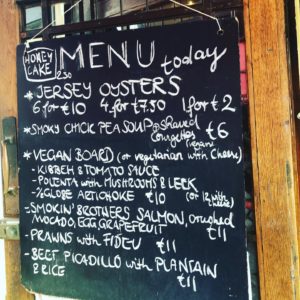 HONEY CAKE 2.50
MENU today
* JERSEY OYSTERS
6 for €10 4 for €7.50 1 for €2
* SMOKY CHICK PEA SOUP @ shaved courgettes (vegan) €6
* VEGAN BOARD (or vegetarian with Cheese)
- KIBBEH & TOMATO SAUCE
- POLENTA with MUSHROOMS & LEEK
- GLOBE ARTICHOKE €10 (or 12 with
- SMOKIN' BROTHERS SALMON, crushed
AVOCADO, EGG GRAPEFRUIT €11
- PRAWNS with FIDEU €11
- BEEF PICADILLO with PLANTAIN
& RICE €11